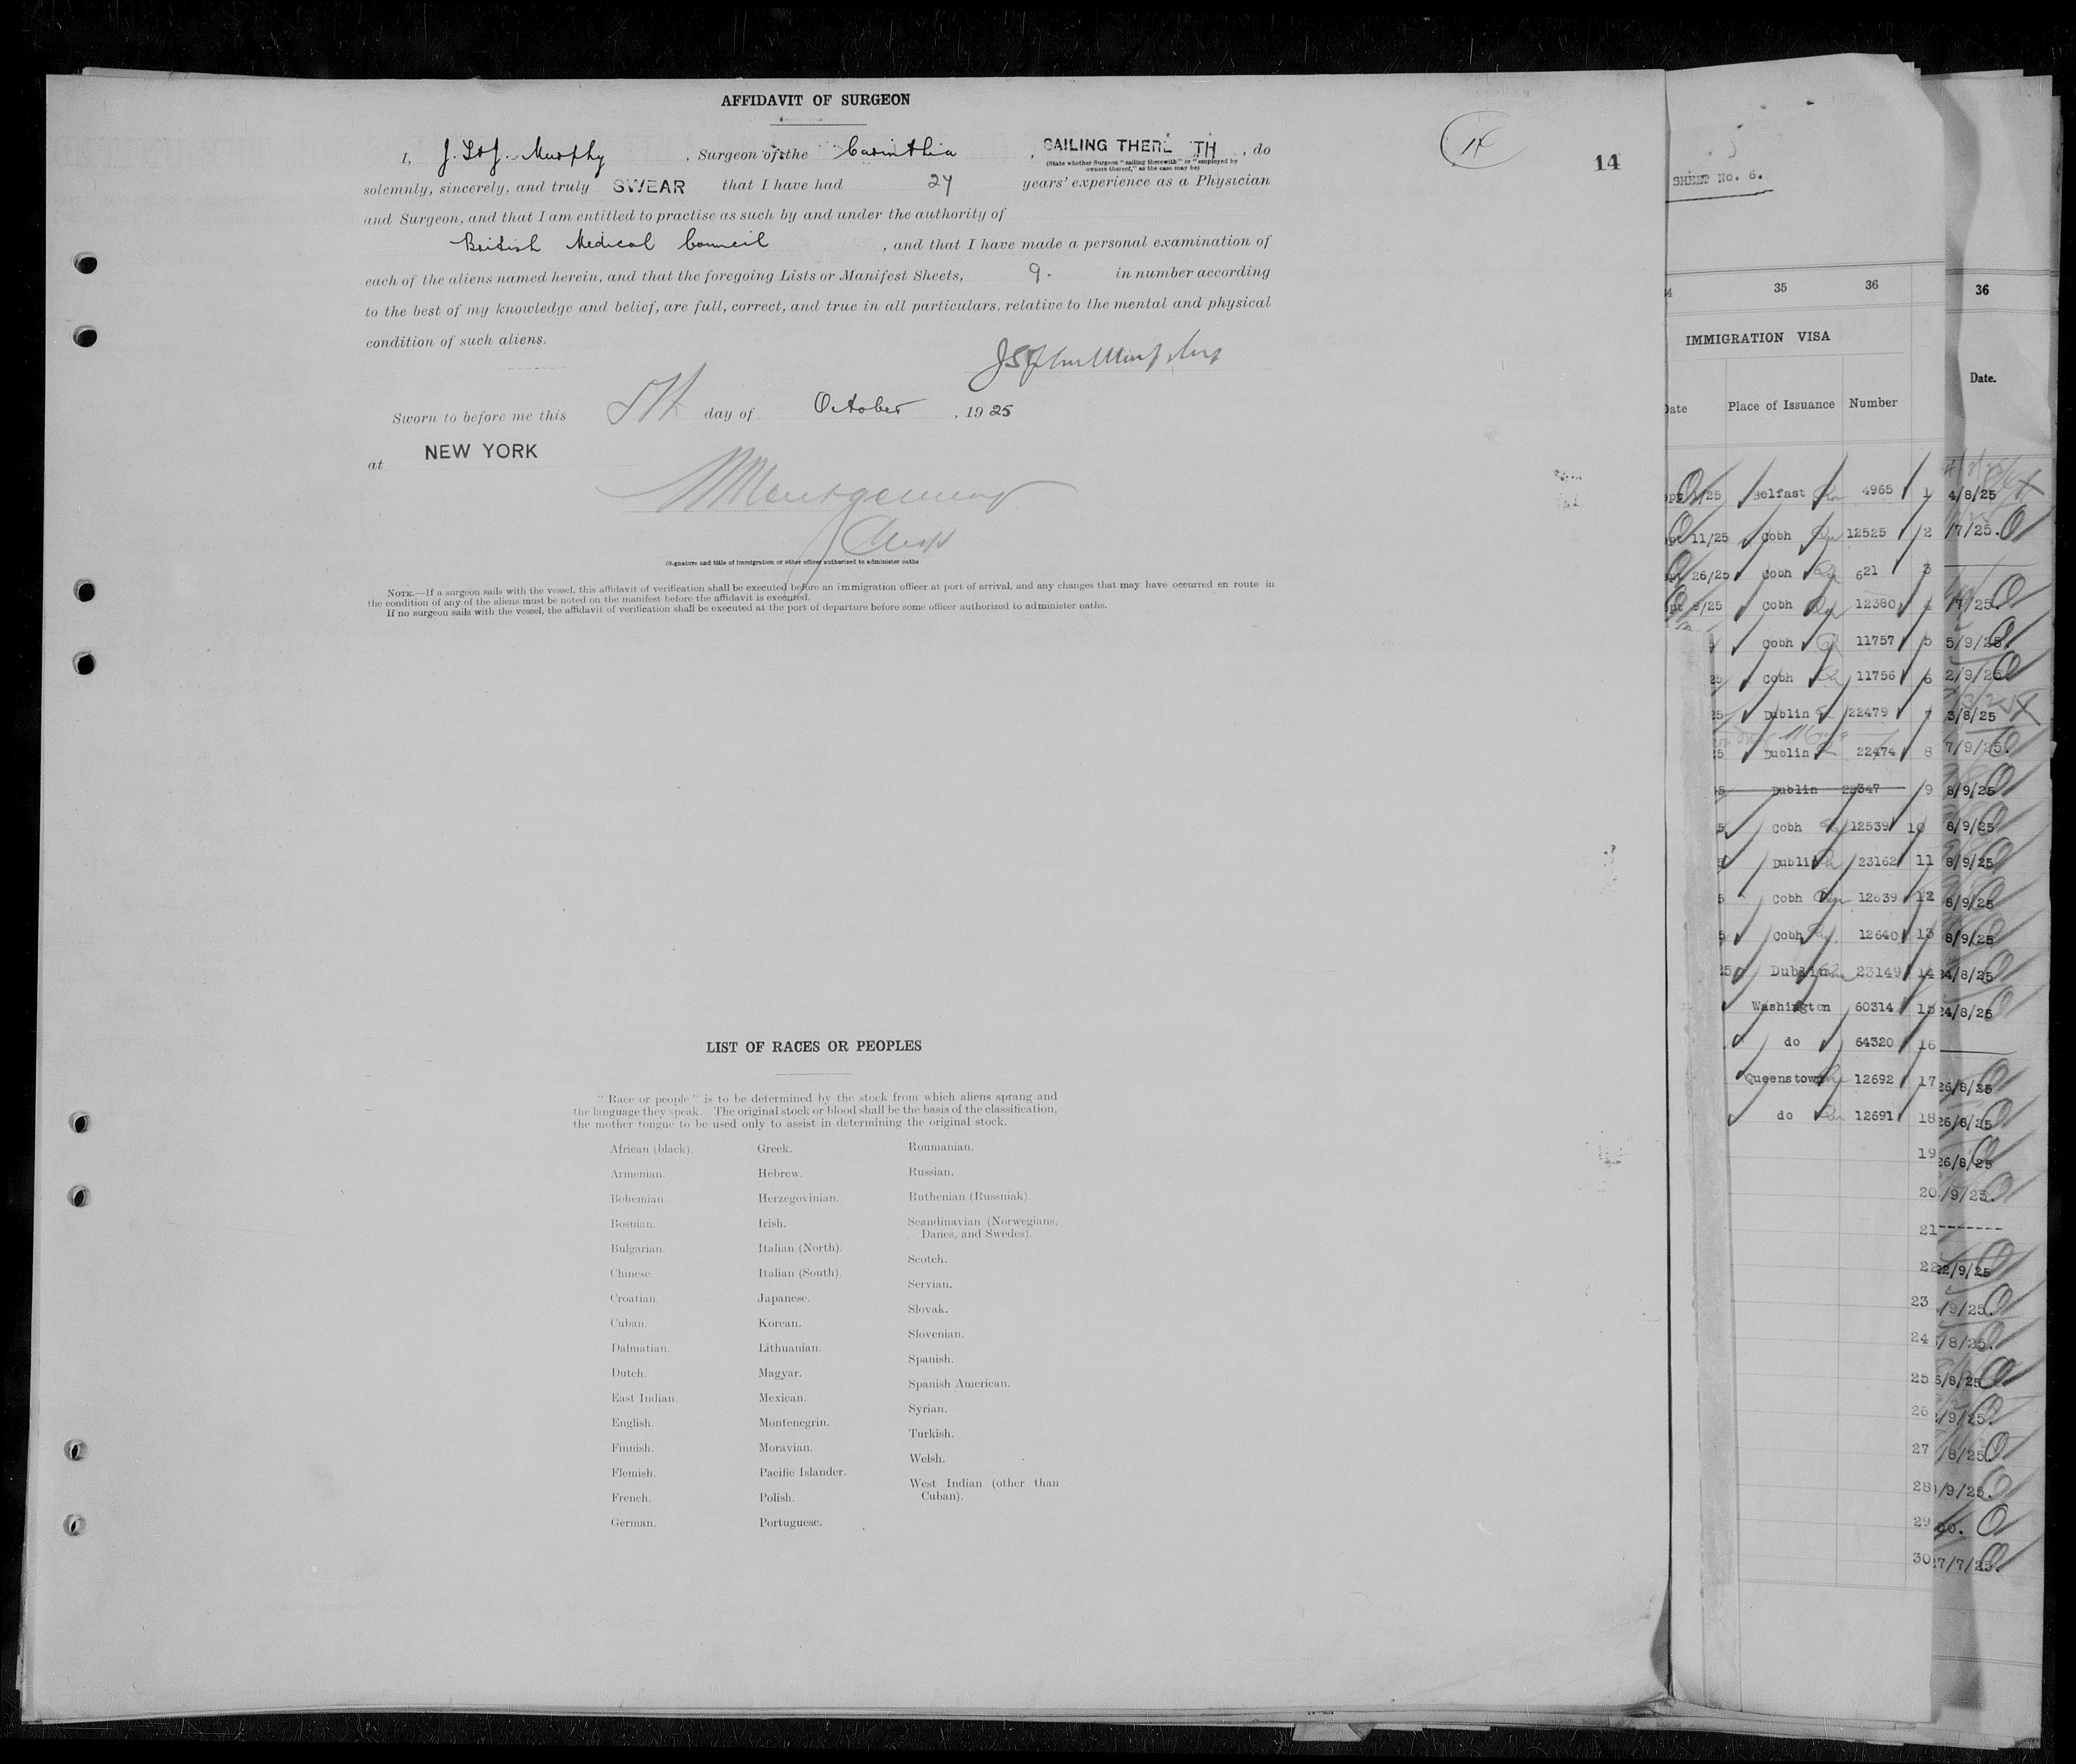 AFFIDAVIT OF SURGEON
14
14
I, J. St J. Murphy, Surgeon of the Carinthia, SAILING THERE TH, do
(State whether Surgeon "sailing therewith" or "employed by
owners thereof," as the case may be)
solemnly, sincerely, and truly SWEAR that I have had 24 years' experience as a Physician
and Surgeon, and that I am entitled to practise as such by and under the authority of
British Medical Council, and that I have made a personal examination of
each of the aliens named herein, and that the foregoing Lists or Manifest Sheets, 9. in number according
to the best of my knowledge and belief, are full, correct, and true in all particulars. relative to the mental and physical
condition of such aliens.
Sworn to before me this 5th day of October, 1925
at NEW YORK
Montgomery
(Signature and title of immigration or other officer authorized to administer oaths
NOTE.—If a surgeon sails with the vessel, this affidavit of verification shall be executed before an immigration officer at port of arrival, and any changes that may have occurred en route in
the condition of any of the aliens must be noted on the manifest before the affidavit is executed.
If no surgeon sails with the vessel, the affidavit of verification shall be executed at the port of departure before some officer authorized to administer oaths.
LIST OF RACES OR PEOPLES
"Race or people" is to be determined by the stock from which aliens sprang and
the language they speak. The original stock or blood shall be the basis of the classification,
the mother tongue to be used only to assist in determining the original stock.
African (black).
Armenian.
Bohemian.
Bosnian.
Bulgarian.
Chinese.
Croatian.
Cuban.
Dalmatian.
Dutch.
East Indian.
English.
Finnish.
Flemish.
French.
German.
Greek.
Hebrew.
Herzegovinian.
Irish.
Italian (North).
Italian (South).
Japanese.
Korean.
Lithuanian.
Magyar.
Mexican.
Montenegrin.
Moravian.
Pacific Islander.
Polish.
Portuguese.
Roumanian.
Russian.
Ruthenian (Russniak).
Scandinavian (Norwegians,
Danes, and Swedes).
Scotch.
Servian.
Slovak.
Slovenian.
Spanish.
Spanish American.
Syrian.
Turkish.
Welsh.
West Indian (other than
Cuban).
SHEET No. 6.
35 36
IMMIGRATION VISA
Date Place of Issuance Number
Belfast 4965 1
11/25 Cobh 12525 2
26/25 Cobh 621 3
9/25 Cobh 12380 4
Cobh 11757 5
25 Cobh 11756 6
25 Dublin 22479 7
25 Dublin 22474 8
Dublin 22347 9
Cobh 12539 10
Dublin 23162 11
Cobh 12639 12
Cobh 12640 13
25 Dublin 23149 14
Washington 60314 15
do 64320 16
Queenstown 12692 17
do 12691 18
19
20
21
22
23
24
25
26
27
28
29
30
36
Date.
4/8/25
/7/25.
/7/25.
5/9/25
2/9/25
3/8/25
7/9/25.
8/9/25
8/9/25
8/9/25
8/9/25
8/9/25
24/8/25
24/8/25
26/8/25
26/8/25
26/8/25
/9/25.
22/9/25
/9/25.
/8/25.
6/8/25
/9/25.
/8/25.
/9/25.
do.
27/7/25.